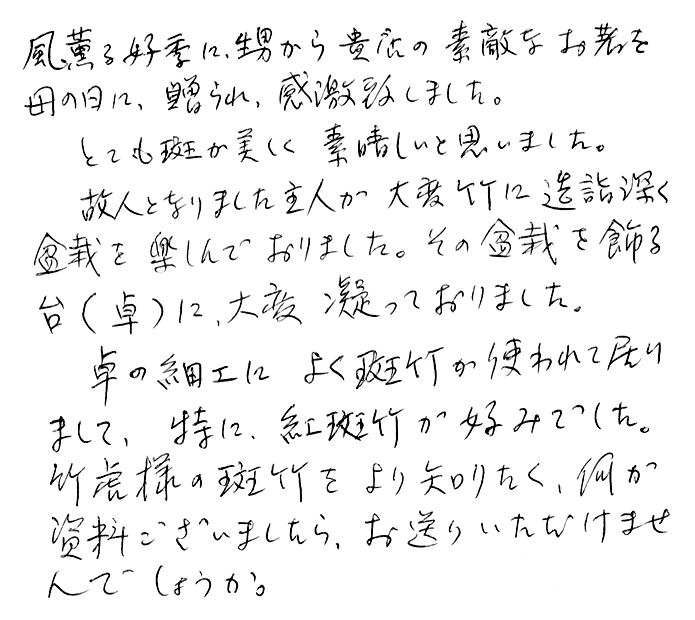 風薫る好季に、甥から貴店の素敵なお箸を
母の日に、贈られ、感激致しました。
とても斑が美しく素晴しいと思いました。
故人となりました主人が大変竹に造詣深く
盆栽を楽しんでおりました。その盆栽を飾る
台(卓)に、大変凝っておりました。
卓の細工によく斑竹が使われて居り
まして、特に、紅斑竹が好みでした。
竹虎様の斑竹をより知りたく、何か
資料ございましたら、お送りいただけませ
んでしょうか。